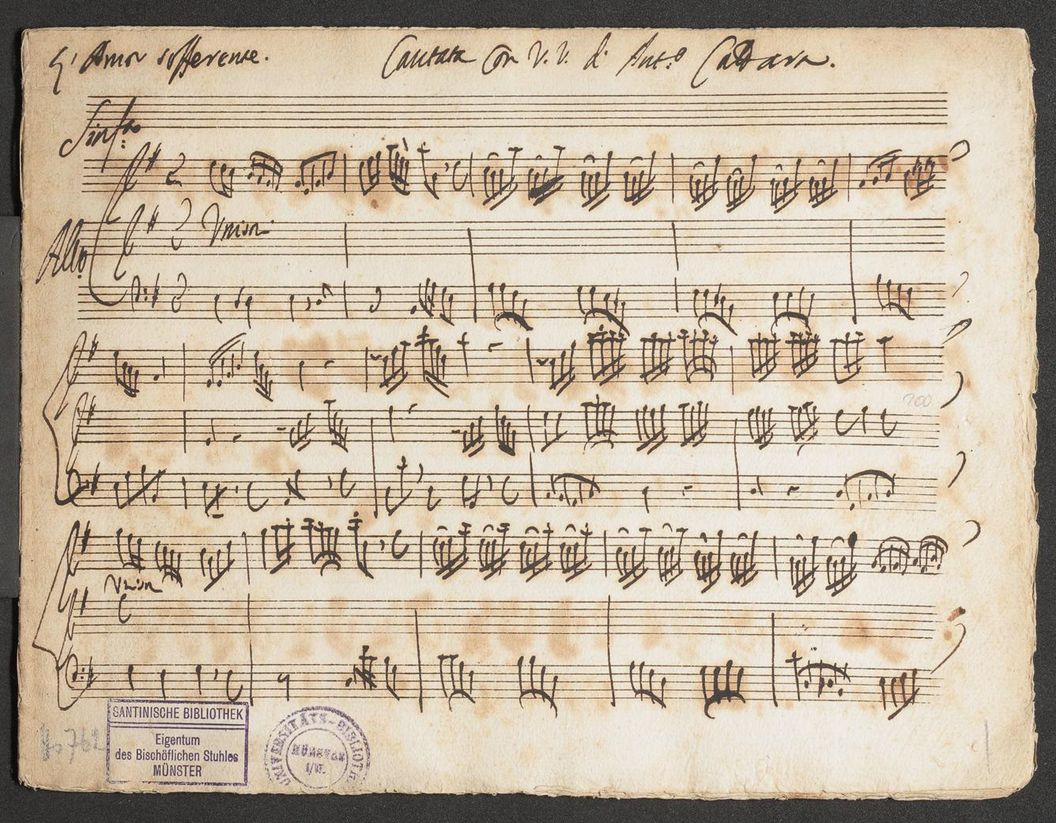 L'Amor sofferente. Cantata con V.V. di Ant.º Caldara.
Sinf.ª
Unison
All.º
200
Unison
SANTINISCHE BIBLIOTHEK
Eigentum
des Bischöflichen Stuhles
MÜNSTER
UNIVERSITÄTS-BIBLIOTH
MÜNSTER
I/W.
1